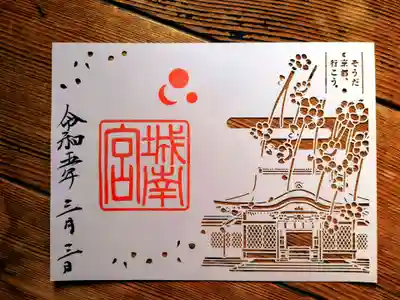 そうだ
京都、
行こう。
城南
宮
令和五年 三月三日